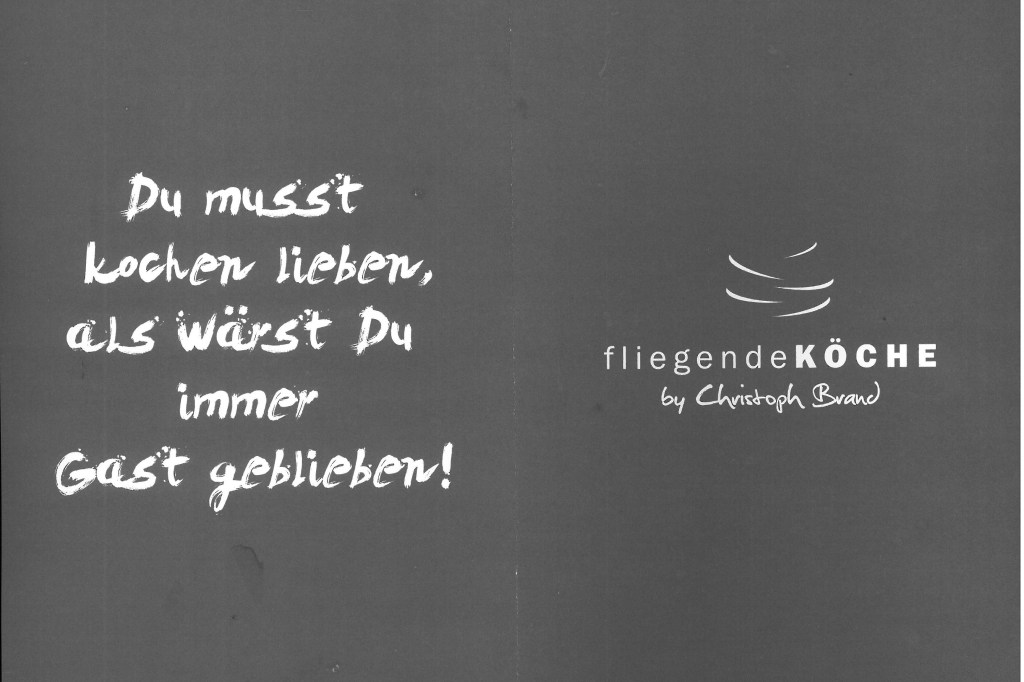 Du musst
kochen lieben,
als wärst Du
immer
Gast geblieben!
fliegendeKÖCHE
by Christoph Brand